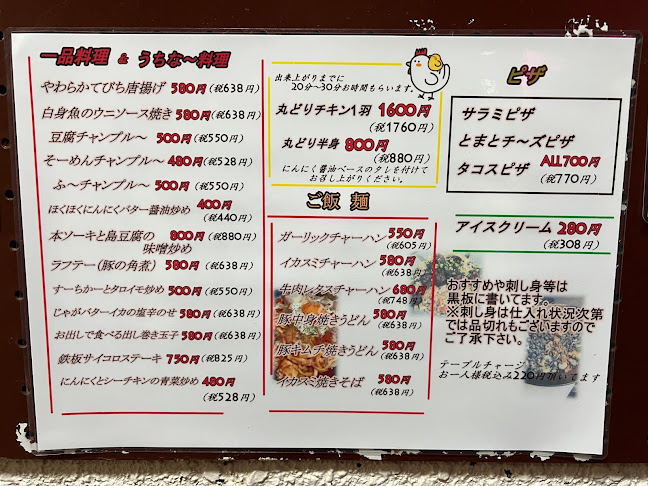 一品料理 & うちな〜料理
やわらかてびち唐揚げ 580円 (税638円)
白身魚のウニソース焼き 580円 (税638円)
豆腐チャンプル〜 500円 (税550円)
そーめんチャンプル〜 480円 (税528円)
ふ〜チャンプル〜 500円 (税550円)
ほくほくにんにくバター醤油炒め 400円
(税440円)
本ソーキと島豆腐の 800円 (税880円)
味噌炒め
ラフテー(豚の角煮) 580円 (税638円)
すーちかーとタロイモ炒め 500円 (税550円)
じゃがバターイカの塩辛のせ 580円 (税638円)
お出しで食べる出し巻き玉子 580円 (税638円)
鉄板サイコロステーキ 750円 (税825円)
にんにくとシーチキンの青菜炒め 480円
(税528円)
出来上がりまでに
20分〜30分お時間もらいます。
丸どりチキン1羽 1600円
(税1760円)
丸どり半身 800円
(税880円)
にんにく醤油ベースのタレを付けて
お召し上がりください。
ご飯 麺
ガーリックチャーハン 550円
(税605円)
イカスミチャーハン 580円
(税638円)
牛肉レタスチャーハン 680円
(税748円)
豚中身焼きうどん 580円
(税638円)
豚キムチ焼きうどん 580円
(税638円)
イカスミ焼きそば 580円
(税638円)
ピザ
サラミピザ
とまとチ〜ズピザ
タコスピザ ALL700円
(税770円)
アイスクリーム 280円
(税308円)
おすすめや刺し身等は
黒板に書いてます。
※刺し身は仕入れ状況次第
では品切れもございますので
ご了承下さい。
テーブルチャージ
お一人様税込み220円頂いてます